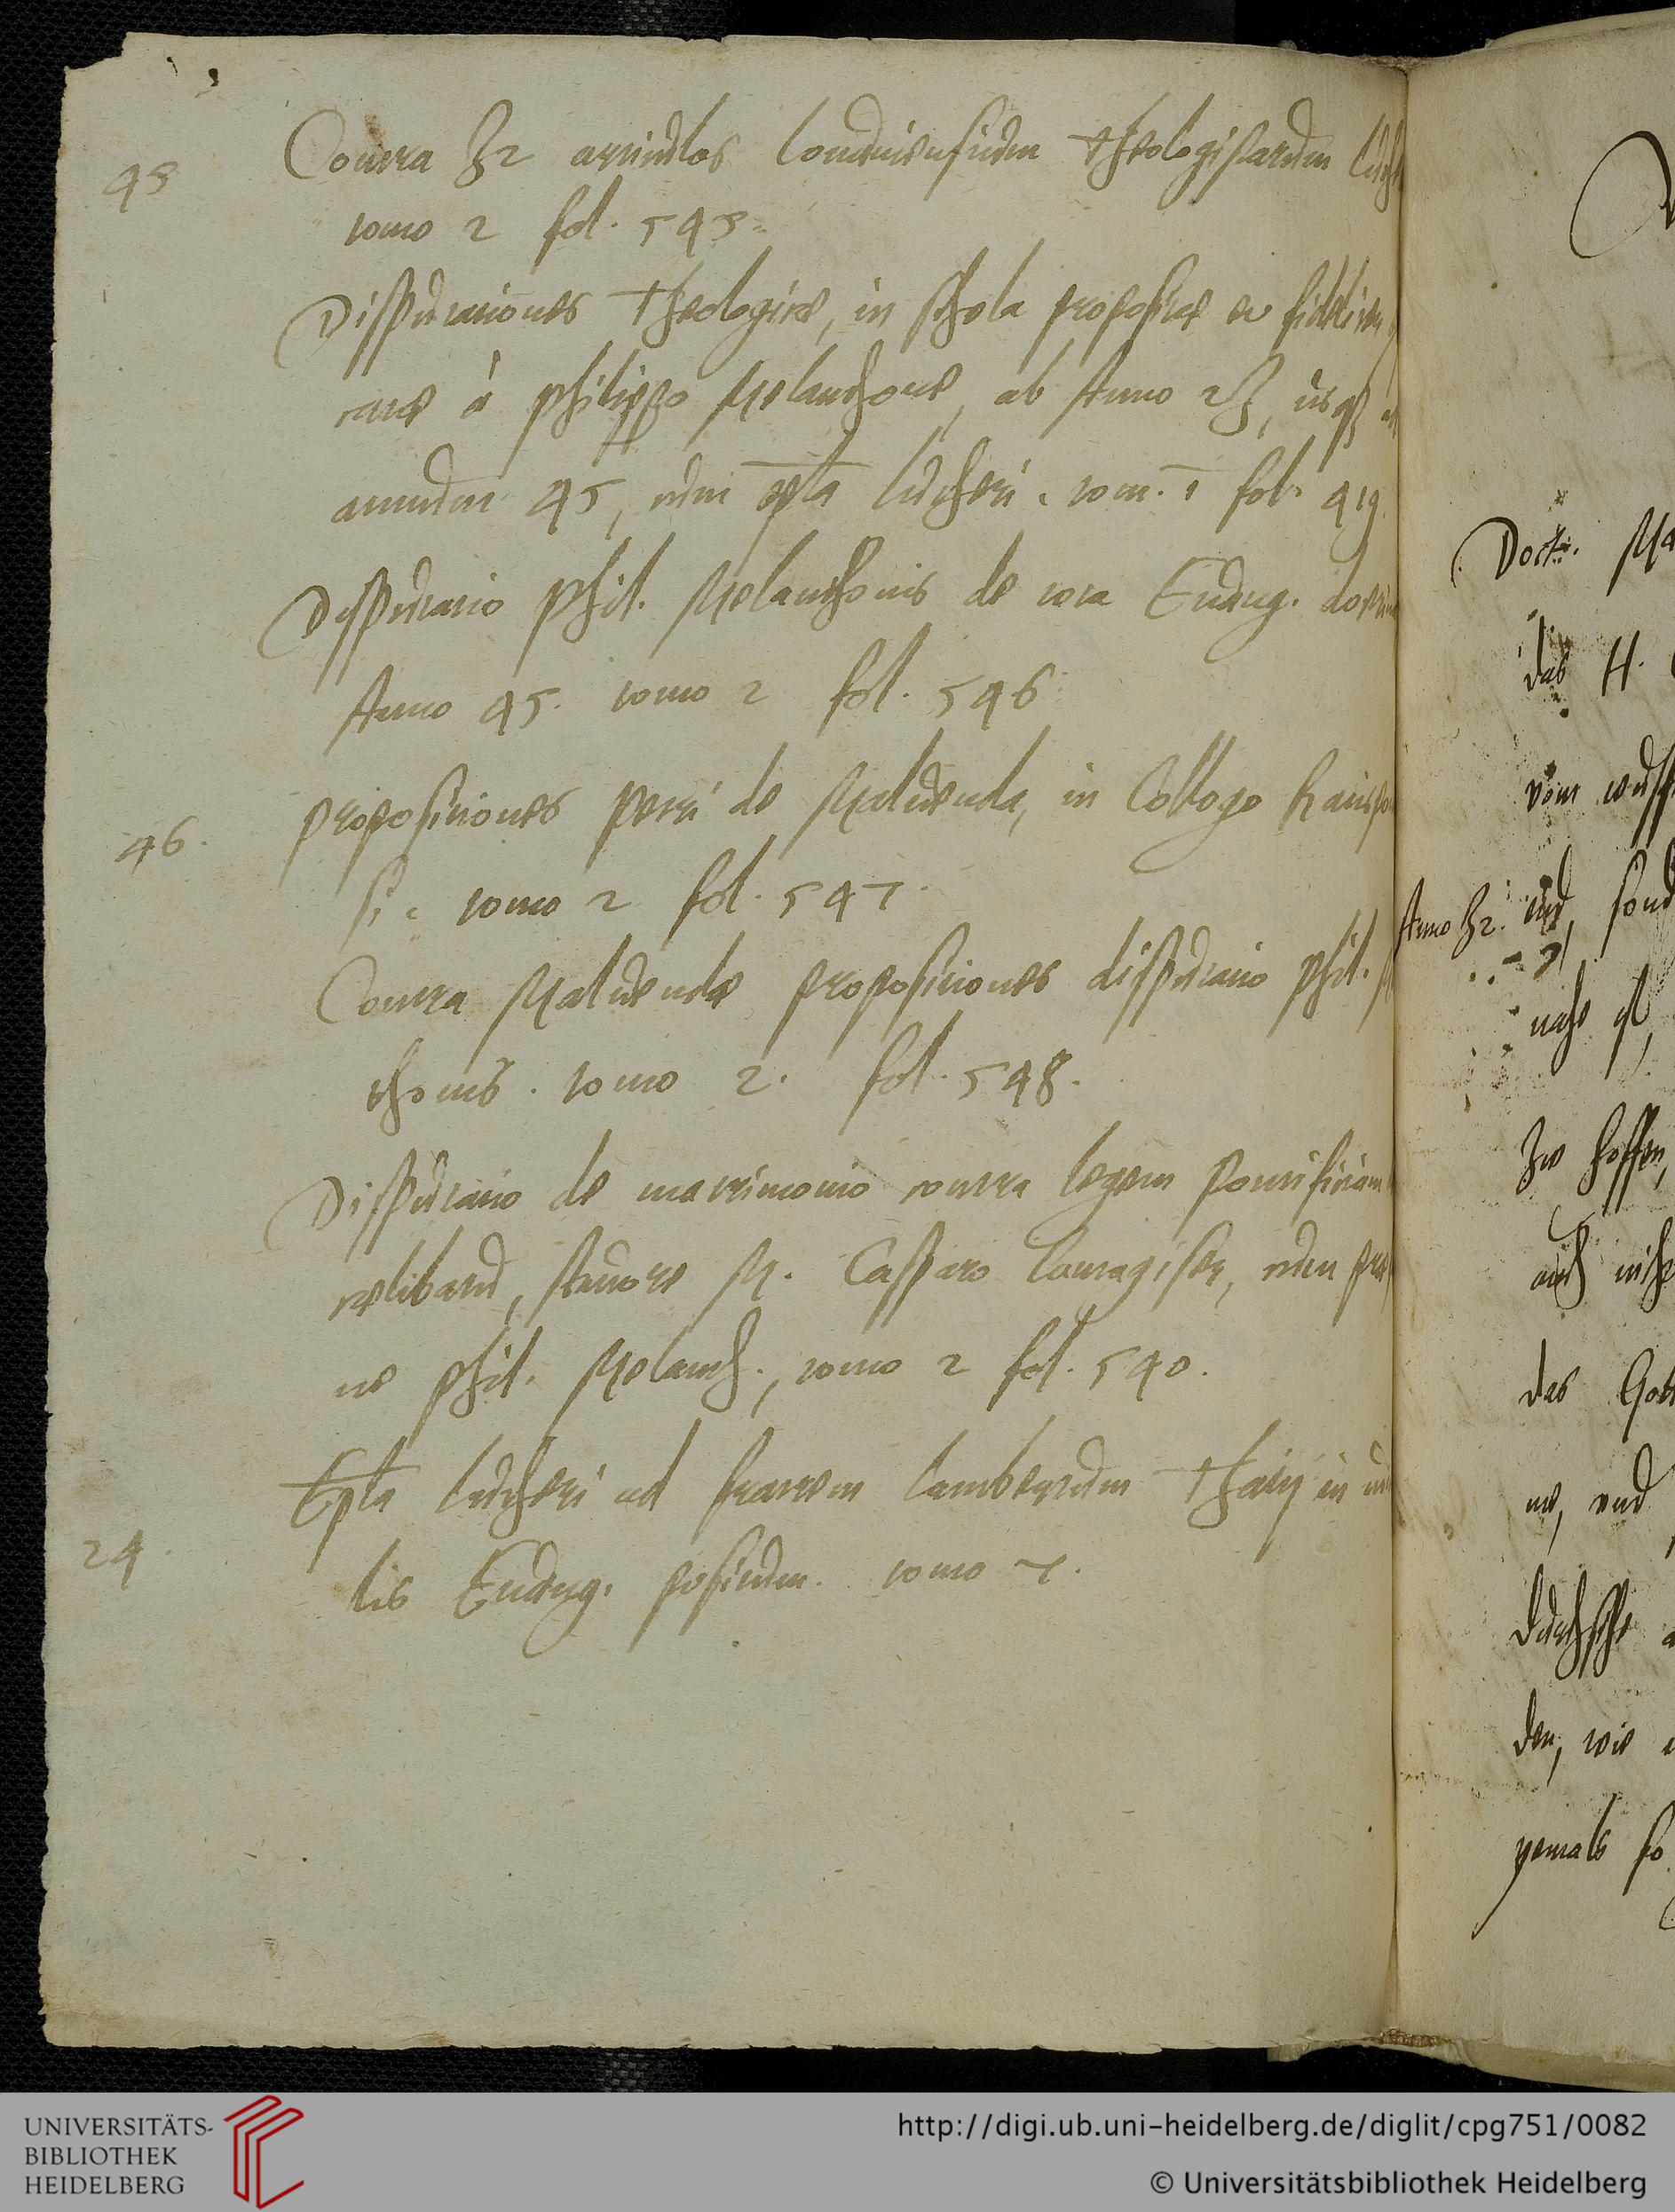 45 Contra 32 articulos Louaniensium Theologistarum Luth
tomo 2 fol. 545.
Disputationes Theologicæ, in schola propositæ et
a Philippo Melanthone, ab Anno usq
annum 45, cum epla Lutheri. tom. 1 fol. 419
Disputatio Phil. Melanthonis de tota Euang. doctrin
Anno 45. tomo 2 fol. 546.
46. Propositiones Petri de Maluenda, in Colloqo Ratispo
si. tomo 2 fol. 547.
Contra Maluendæ propositiones disputatio Phil. M
thonis. tomo 2. fol. 548.
Disputatio de matrimonio contra legem Pontificiam
cælibatu, Autore M. Casparo cum præ
ne Phil. Melanth., tomo 2 fol. 540.
Epla Lutheri ad fratrem Lambertum Thorn in
24. lis Euang. positum. tomo 2.
Doct. Ma
das H.
vom
Anno 32. und, sond
nahe ist,
Zw hoffen,
auch nicht
das Gott
ne, und
den, wie
yemals so
UNIVERSITÄTS-
BIBLIOTHEK
HEIDELBERG
http://digi.ub.uni-heidelberg.de/diglit/cpg751/0082
© Universitätsbibliothek Heidelberg